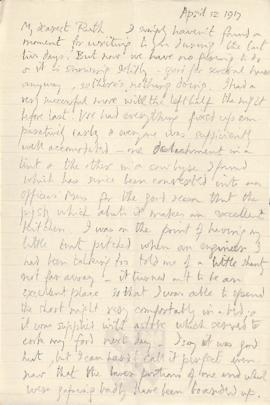 April 12 1917
My dearest Ruth I simply haven't found a
moment for writing to you during the last
two days. But now we have no firing to do
& it is snowing for several hours
anyway, so there's nothing doing. I had a
very successful move with the left half the night
before last. I've had everything fixed up com-
paratively early & everyone was sufficiently
well accomodated – one detachment in a
tent & the other in a cow byre I found
which has since been converted into our
officers' mess for the good reason that the
which abuts it makes an excellent
kitchen. I was on the point of having my
little tent pitched when an engineer I
had been talking to told me of a little shanty
not far away – it turned out to be an
excellent place so that I was able to spend
the short night very comfortably in a bed;
it was supplied with a stove which served to
cook my food next day. I say it was good
that, but I can hardly call it perfect even
now that the lower portions of one end which
were gaping badly have been boarded up.